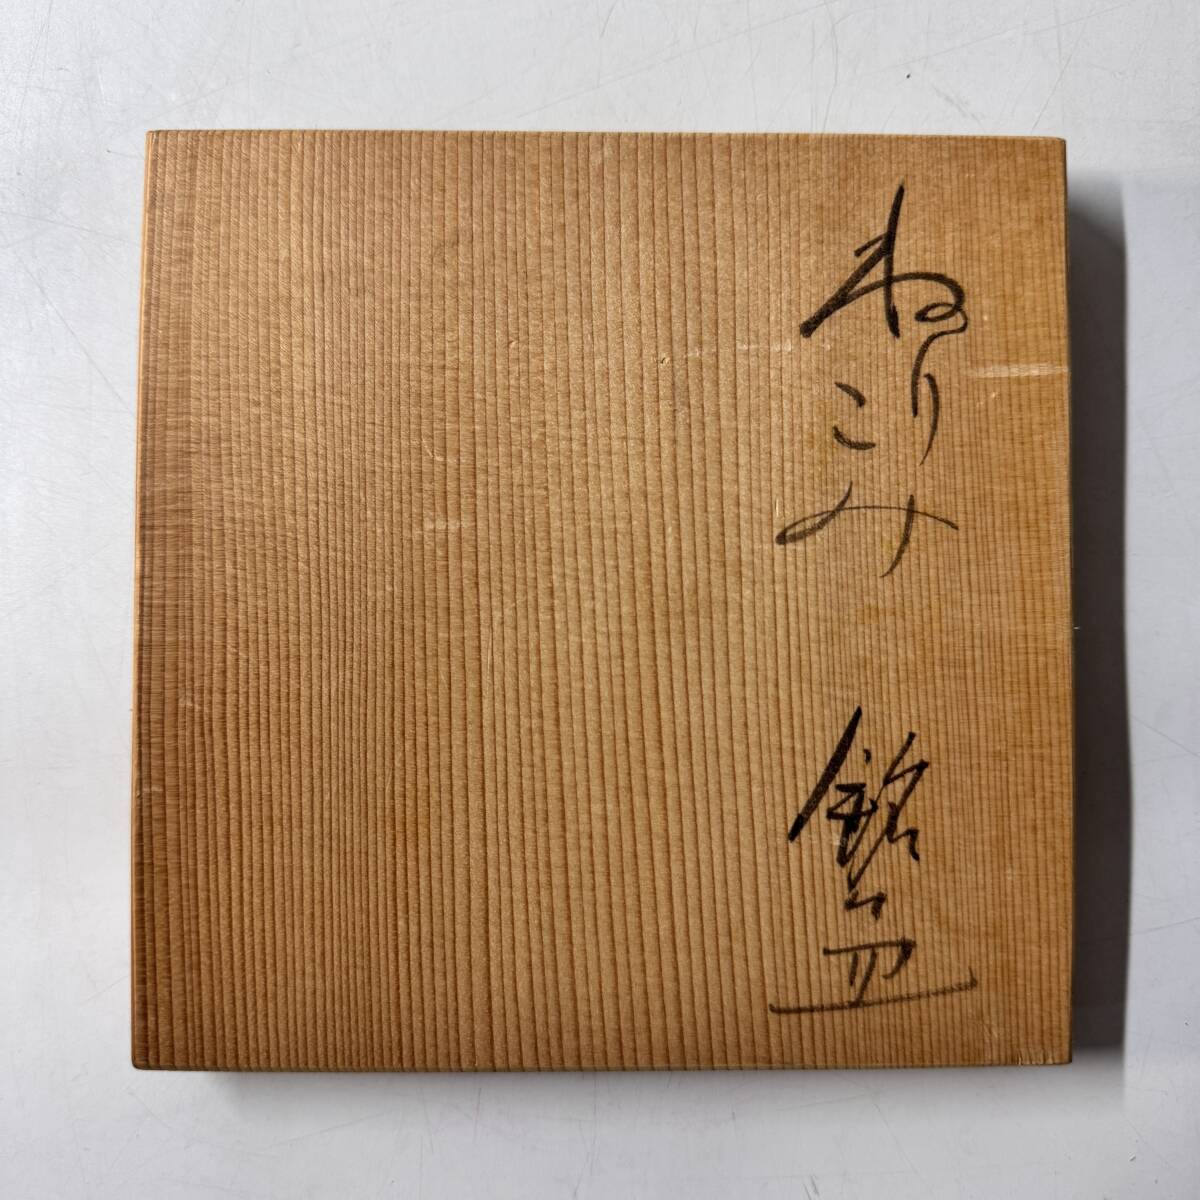 ねりこみ 銘々皿